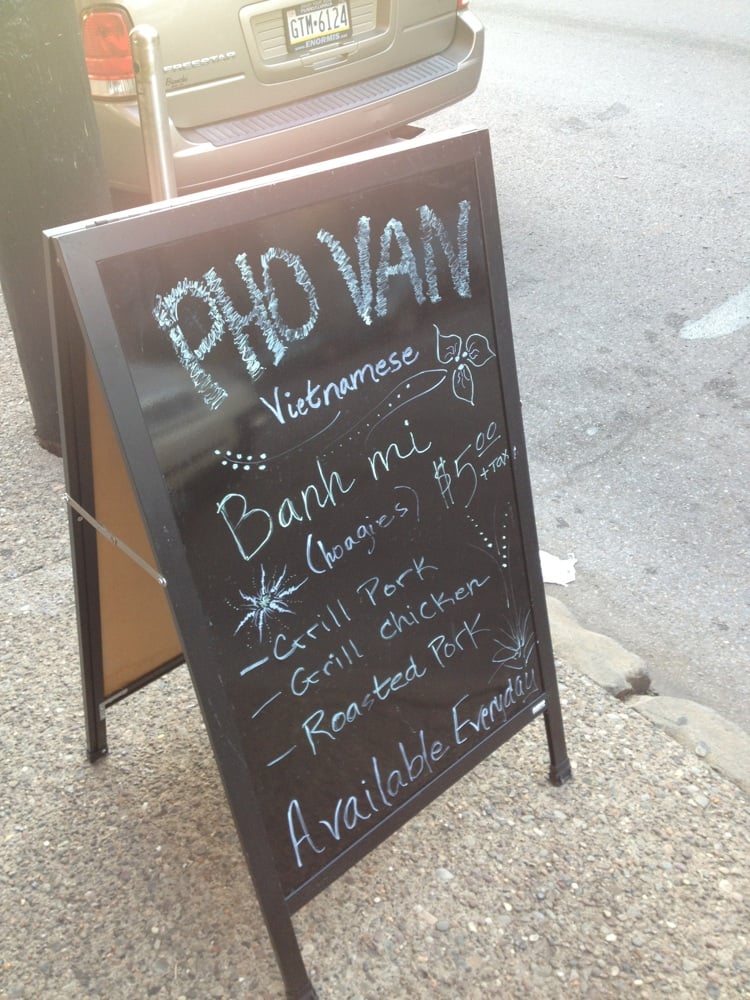 GTM•6124
www.ENORMIS.com
FREESTAR
PHO VAN
Vietnamese
Banh mi $5.00 +Tax
(hoagies)
- Grill Pork
- Grill chicken
- Roasted Pork
Available Everyday